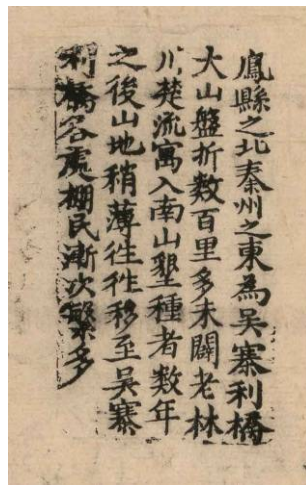 鳳縣之北秦州之東為吳寨利橋
大山盤折数百里多未闢老林
川楚流寓入南山墾種者数年
之後山地稍薄徃徃移至吳寨
利橋各處棚民漸次繁多